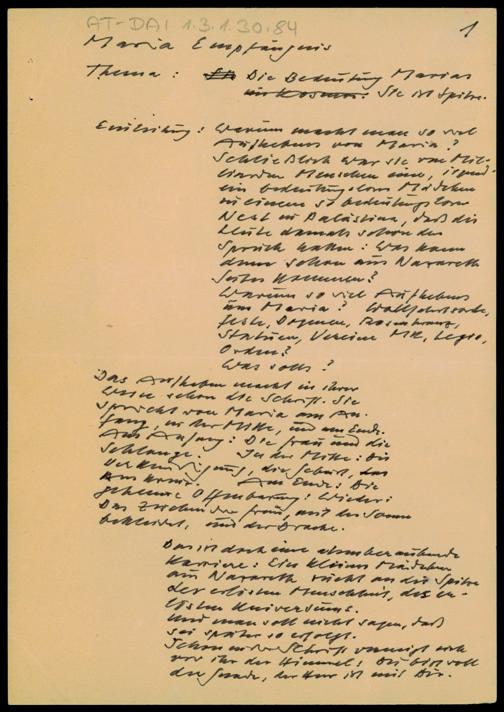 AT-DAI 1.3.1.30.84
1
Maria Empfängnis
Thema: Die Bedeutung Marias
im Kosmos. Sie ist Spitze.
Einleitung: Warum macht man so viel
Aufhebens von Maria?
Schließlich war sie von Mil-
liarden Menschen eine, irgend-
ein bedeutungsloses Mädchen
in einem so bedeutungslosen
Nest in Palästina, daß die
Leute damals schon den
Spruch hatten: Was kann
denn schon aus Nazareth
Gutes kommen?
Warum so viel Aufhebens
um Maria? Wallfahrtsorte,
Feste, Dogmen, Rosenkranz,
Statuen, Vereine MK, Legio,
Orden?
Was solls?
Das Aufheben macht in ihrer
Weise schon die Schrift. Sie
spricht von Maria am An-
fang, in der Mitte, und am Ende.
Am Anfang: Die Frau und die
Schlange. In der Mitte: Die
Verkündigung, die Geburt, das
am Kreuz. Am Ende: Die
geheime Offenbarung: Wieder:
Das Zeichen der Frau, mit der Sonne
bekleidet, und der Drache.
Das ist doch eine atemberaubende
Karriere: Ein kleines Mädchen
aus Nazareth rückt an die Spitze
der erlösten Menschheit, des er-
lösten Universums.
Und man soll nicht sagen, daß
sei später so erfolgt.
Schon in der Schrift verneigt sich
vor ihr der Himmel: Du bist voll
der Gnade, der Herr ist mit Dir.